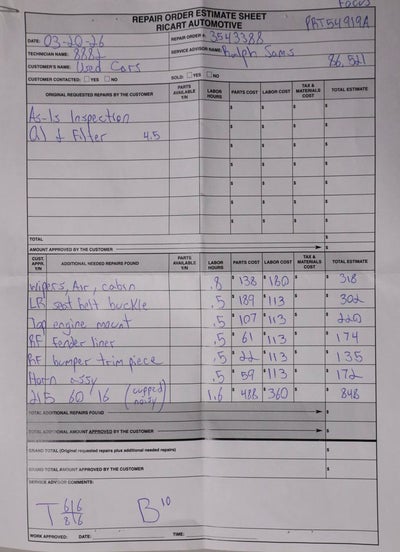 Focus
REPAIR ORDER ESTIMATE SHEET
RICART AUTOMOTIVE
PRT54919A
DATE: 03-20-26 REPAIR ORDER #: 3543388
TECHNICIAN NAME: 8882 SERVICE ADVISOR NAME: Ralph Sams
CUSTOMER'S NAME: Used Cars 86,521
CUSTOMER CONTACTED: YES NO SOLD: YES NO
ORIGINAL REQUESTED REPAIRS BY THE CUSTOMER PARTS AVAILABLE Y/N LABOR HOURS PARTS COST LABOR COST TAX & MATERIALS COST TOTAL ESTIMATE
As-Is Inspection $ $ $ $
Oil & Filter 4.5 $ $ $ $
$ $ $ $
$ $ $ $
$ $ $ $
$ $ $ $
TOTAL $
AMOUNT APPROVED BY THE CUSTOMER $
CUST. APPR. Y/N ADDITIONAL NEEDED REPAIRS FOUND PARTS AVAILABLE Y/N LABOR HOURS PARTS COST LABOR COST TAX & MATERIALS COST TOTAL ESTIMATE
Wipers, Air, cabin .8 $ 138 $ 180 $ $ 318
LR seat belt buckle .5 $ 189 $ 113 $ $ 302
Top engine mount .5 $ 107 $ 113 $ $ 220
RF Fender liner .5 $ 61 $ 113 $ $ 174
RF bumper trim piece .5 $ 22 $ 113 $ $ 135
Horn assy .5 $ 59 $ 113 $ $ 172
215 60 16 (cupped noisy) 1.6 $ 488 $ 360 $ $ 848
TOTAL ADDITIONAL REPAIRS FOUND $
TOTAL ADDITIONAL AMOUNT APPROVED BY THE CUSTOMER $
GRAND TOTAL (Original requested repairs plus additional needed repairs) $
GRAND TOTAL AMOUNT APPROVED BY THE CUSTOMER $
SERVICE ADVISOR COMMENTS:
T 6/6 8/6 B10
WORK APPROVED: DATE: TIME: